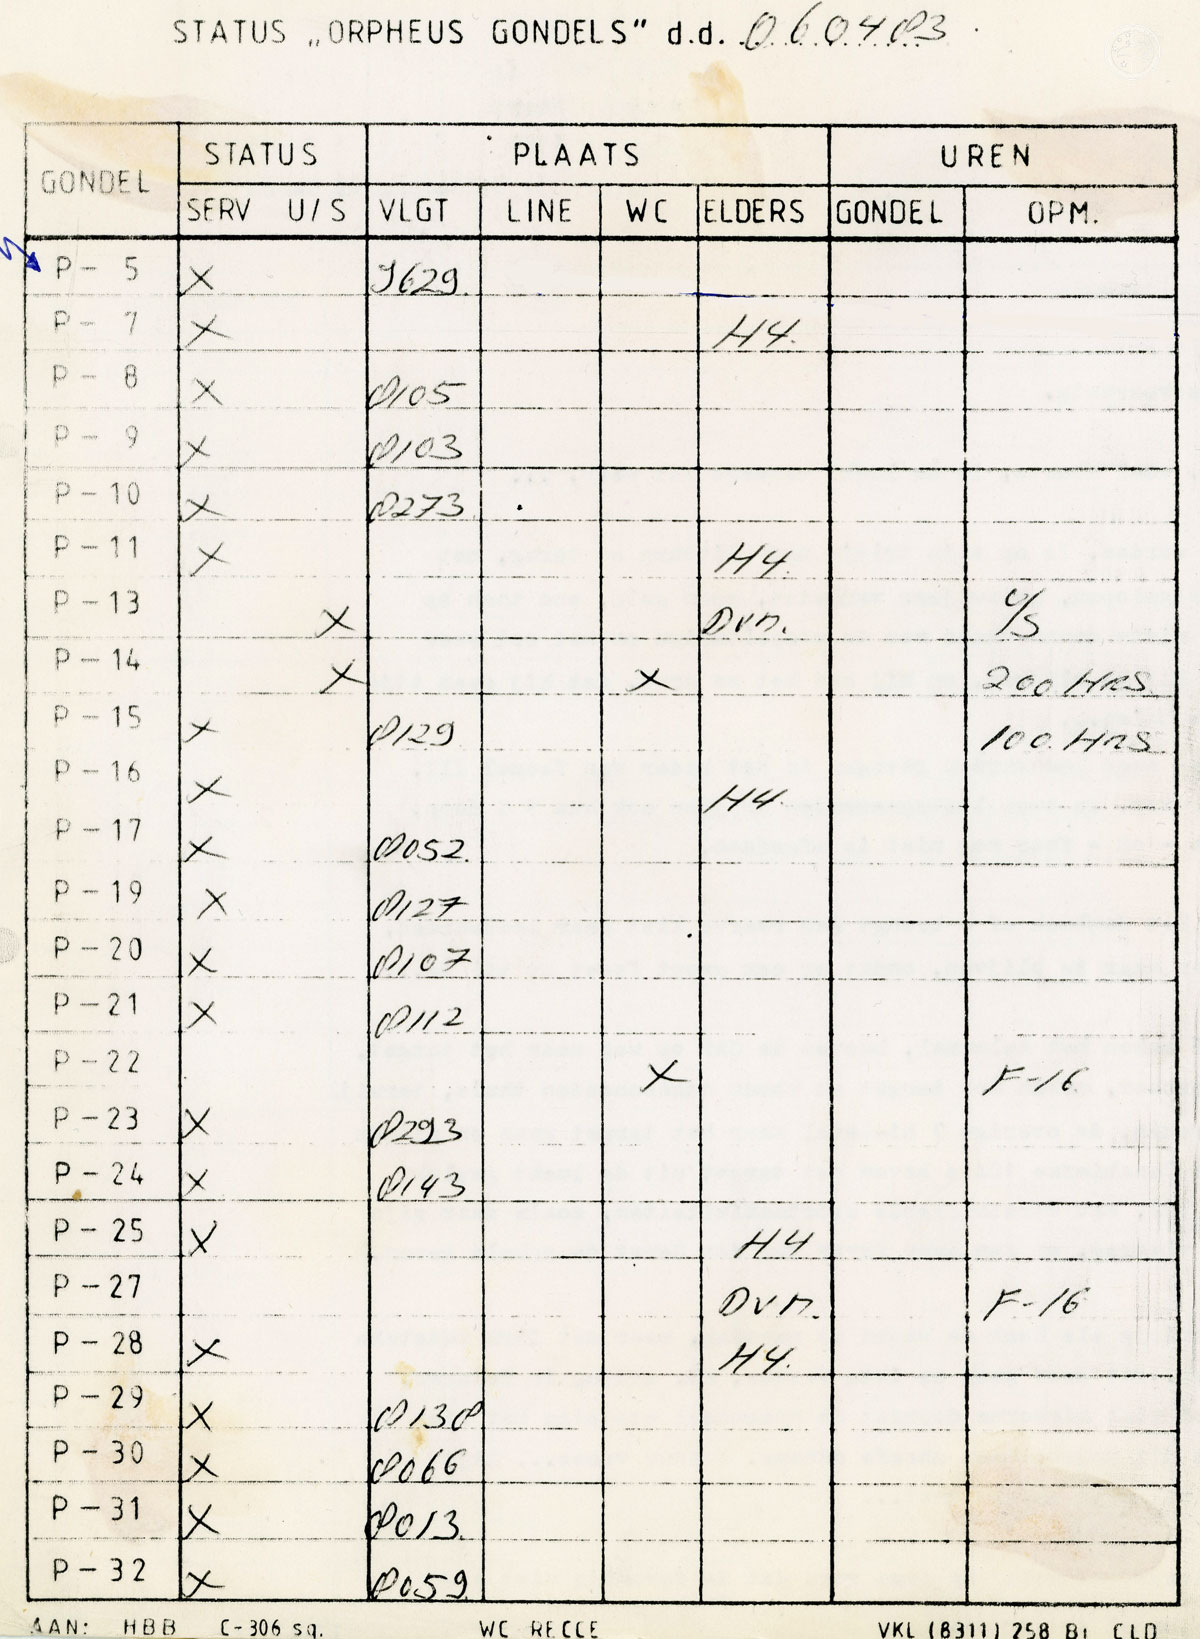 STATUS „ORPHEUS GONDELS" d.d. 060483
GONDEL STATUS PLAATS UREN
SERV U/S VLGT LINE WC ELDERS GONDEL OPM.
P - 5 X J629
P - 7 X H4.
P - 8 X 8105
P - 9 X 8103
P - 10 X 8273
P - 11 X H4.
P - 13 X Dvn. U/S
P - 14 X X 200 HRS
P - 15 X 8129 100 HRS
P - 16 X H4
P - 17 X 8052.
P - 19 X 8127
P - 20 X 8107
P - 21 X 8112
P - 22 X F-16
P - 23 X 8293
P - 24 X 8143
P - 25 X H4
P - 27 Dvn. F-16
P - 28 X H4.
P - 29 X 8138
P - 30 X 8066
P - 31 X 8013.
P - 32 X 8059
AAN: HBB C-306 sq. WC RECCE VKL (8311) 258 Bt CLD